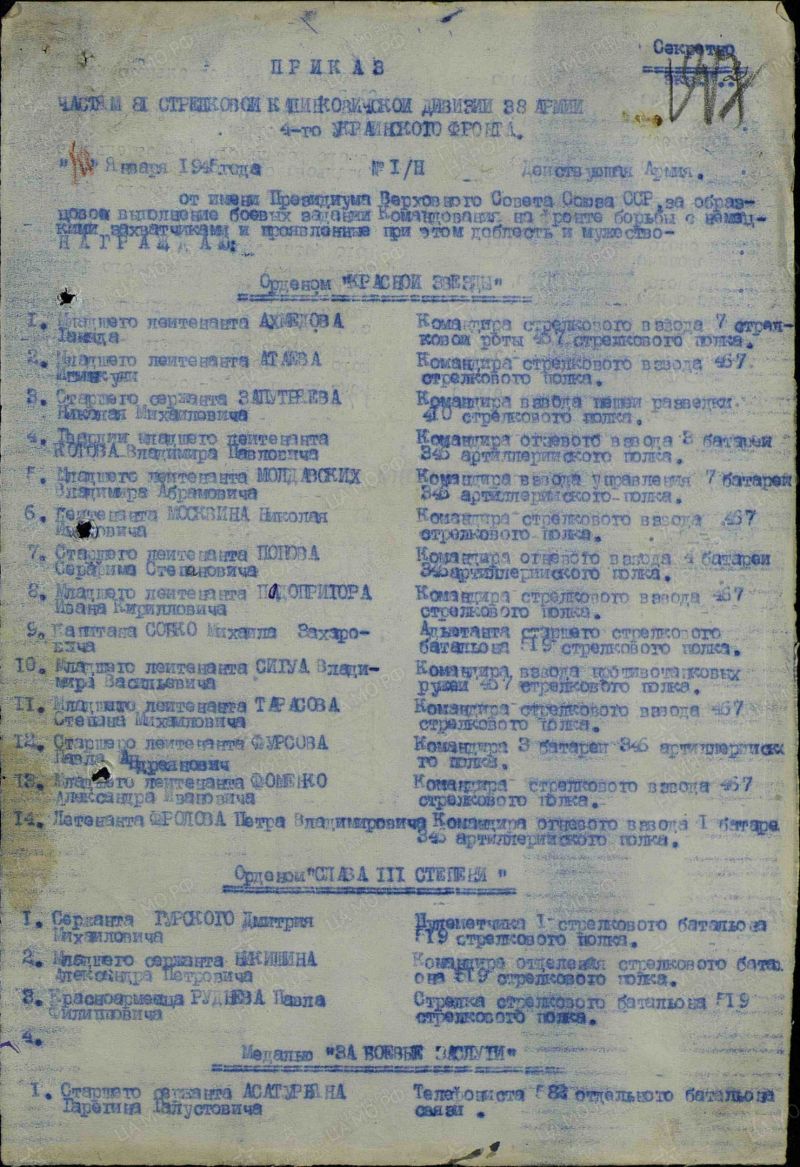 Секретно
ПРИКАЗ
ЧАСТЯМ 81 СТРЕЛКОВОЙ КАЛИНКОВИЧСКОЙ ДИВИЗИИ 38 АРМИИ
4-го УКРАИНСКОГО ФРОНТА.
"10" Января 1945 года № I/Н Действующая Армия.
от имени Президиума Верховного Совета Союза ССР за образ-
цовое выполнение боевых задании Командования на фронте борьбы с немец-
кими захватчиками и проявленные при этом доблесть и мужество-
НАГРАЖДАЮ:
Орденом "КРАСНОЙ ЗВЕЗДЫ"
1. Младшего лейтенанта АХМЕДОВА Командира стрелкового взвода 7 стрел-
ковой роты 467 стрелкового полка.
2. Младшего лейтенанта АТАЕВА Командира стрелкового взвода 467
стрелкового полка.
3. Старшего сержанта Командира взвода пешей разведки
Николая Михайловича 410 стрелкового полка.
4. Гвардии младшего лейтенанта Командира огневого взвода 3 батареи
КОТОВА Владимира Павловича 346 артиллерийского полка.
5. Младшего лейтенанта МОЛДАВСКИХ Командира взвода управления 7 батареи
Владимира Абрамовича 346 артиллерийского-полка.
6. Лейтенанта МОСКВИНА Николая Командира стрелкового взвода 467
стрелкового полка.
7. Старшего лейтенанта ПОПОВА Командира огневого взвода 4 батареи
Серафима Степановича 346 артиллерийского полка.
8. Младшего лейтенанта ПОДОПРИГОРА Командира стрелкового взвода 467
Ивана Кирилловича стрелкового полка.
9. Капитана СОБКО Михаила Захаро- Адьютанта старшего стрелкового
вича батальона 519 стрелкового полка.
10. Младшего лейтенанта СИГУА Влади- Командира взвода противотанковых
мира Васильевича ружей 467 стрелкового полка.
11. Младшего лейтенанта ТАРАСОВА Командира стрелкового взвода 467
Степана Михайловича стрелкового полка.
12. Старшего лейтенанта ФУРСОВА Командира 3 батареи 346 артиллерииск
Павла Андреянович го полка.
13. Младшего лейтенанта ФОМЕНКО Командира стрелкового взвода 467
Александра Ивановича стрелкового полка.
14. Летенанта ФРОЛОВА Петра Владимировича Командира огневого взвода I батаре
346 артиллерийского полка.
Орденом "СЛАВА III СТЕПЕНИ"
1. Сержанта ГУРСКОГО Дмитрия Пулеметчика I стрелкового батальона
Михайловича 519 стрелкового полка.
2. Младшего сержанта НИКИШИНА Командира отделения стрелкового батал
Александра Петровича она 519 стрелкового полка.
3. Красноармейца РУДНЕВА Павла Стрелка стрелкового батальона 519
Филипповича стрелкового полка.
4.
Медалью "ЗА БОЕВЫЕ ЗАСЛУГИ"
1. Старшего сержанта АСАТУРЯНА Телефониста 583 отдельного батальона
Гарегина Галустовича связи .